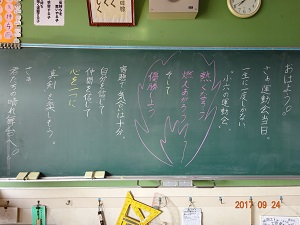 おはよう。
さぁ運動会当日。
一生に一度しかない
"小六の運動会"
熱くなろう
燃えあがろう
そして
優勝しよう
実践で気合は十分。
自分を信じて
仲間を信じて
心を一つに
"真剣"を楽しもう。
いざ
君たちの晴れ舞台へ。
2017 09 24